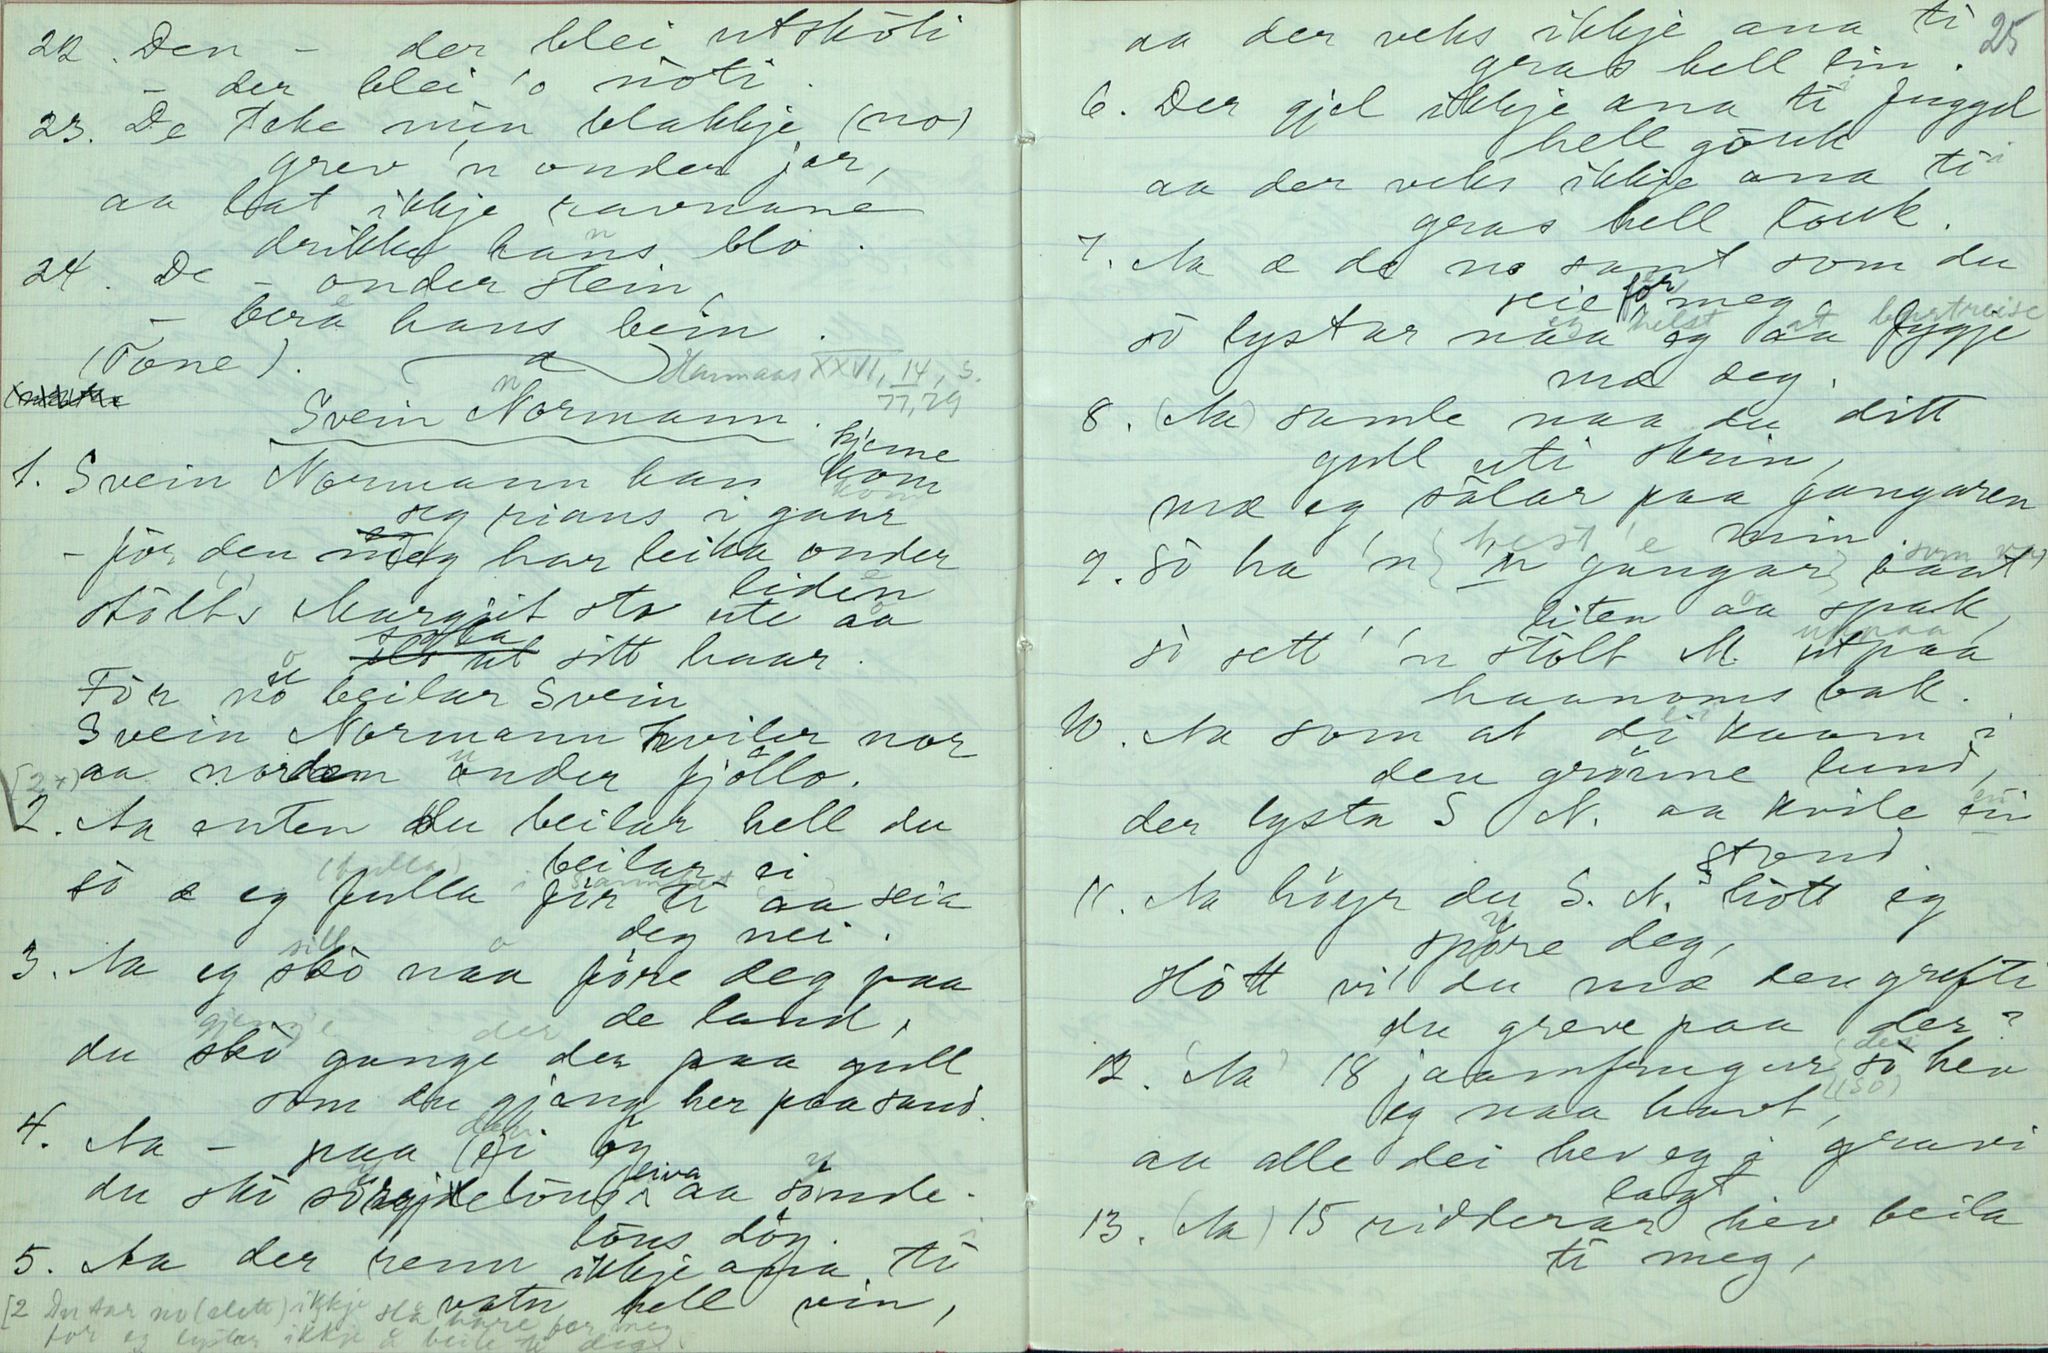 22. Den – der blei utsköti
– der blei 'o nöti.
23. De Teke min blakkje (no)
grev 'n onder jor,
aa lat ikkje ravnane
drikke hans blo.
24. De – onder stein
– bera hans bein.
(Tone).
Harmaas XXVI, 14, s. 77, 79
Svein Normann.
1. Svein Normann han kjeme kom
seg rians i gaar
– for den meg har leika onder
liden
stolts Margjit sto ute aa
sitt haar.
För no beilar Svein
Svein Normann hviler nor
aa norden onder fjöllo.
2. Aa enten du beilar hell du
beilar ei
so æ eg fulla för ti aa seia
deg nei.
3. Aa eg skö naa före deg paa
de land,
du skö gange der paa gull
som du gjeng her paa sand.
4. Aa – paa ei öy
du skö syrgjelöus liva aa synde-
löus döy.
5. Aa der renn ikkje ana ti
vatn hell vin,
[2 Du tar no (slett) ikkje slå håre for meg
for eg lystar ikkje å beile ti deg.
25
aa der veks ikkje ana ti
gras hell lin.
6. Der gjel ikkje ana ti fuggel
hell göuk
aa der veks ikkje ana ti
gras hell louk.
7. Aa æ de no sant som du
seie för meg
so lystar naa eg aa fygje
mæ deg.
8. (Aa) samle naa du ditt
gull uti skrin,
mæ eg sålar paa gangaren
min.
9. So ha 'n 'n gangar
liten aa spak,
so sett 'n stolt M. utpaa
haanoms bak.
10. Aa som at di kaam i
den gröne lund,
der lysta S N. aa kvile ei
stond.
11. Aa höyr du S. N. hött eg
spyre deg,
Hött vi du mæ den grefti
du greve paa der?
12. (Aa) 18 jaamfrugur so hev
eg naa havt,
aa alle dei hev eg i gravi
lagt
13. (Aa) 15 ridderar hev beila
ti meg,